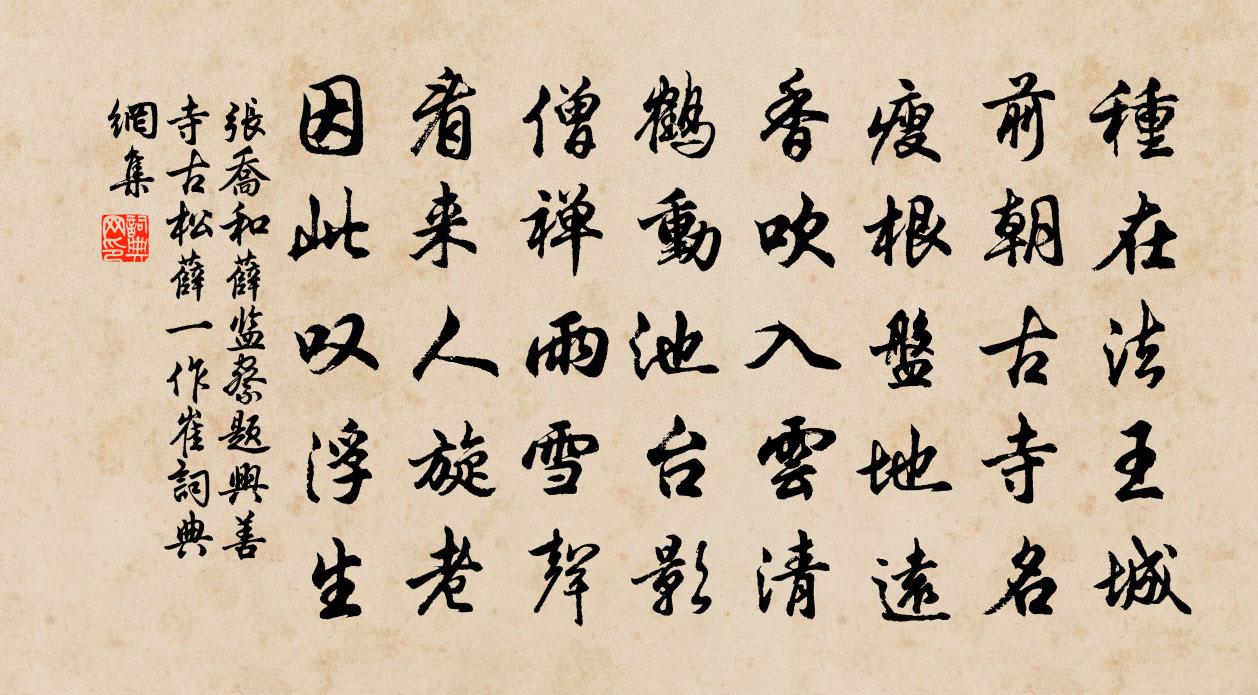 種在法王城
前朝古寺名
瘦根盤地遠
香吹入雲清
鶴動池台影
僧禅雨雪聲
看来人旋老
因此叹浮生
張喬和薛监察题興善
寺古松薛一作崔詞典
網集
詞典網印